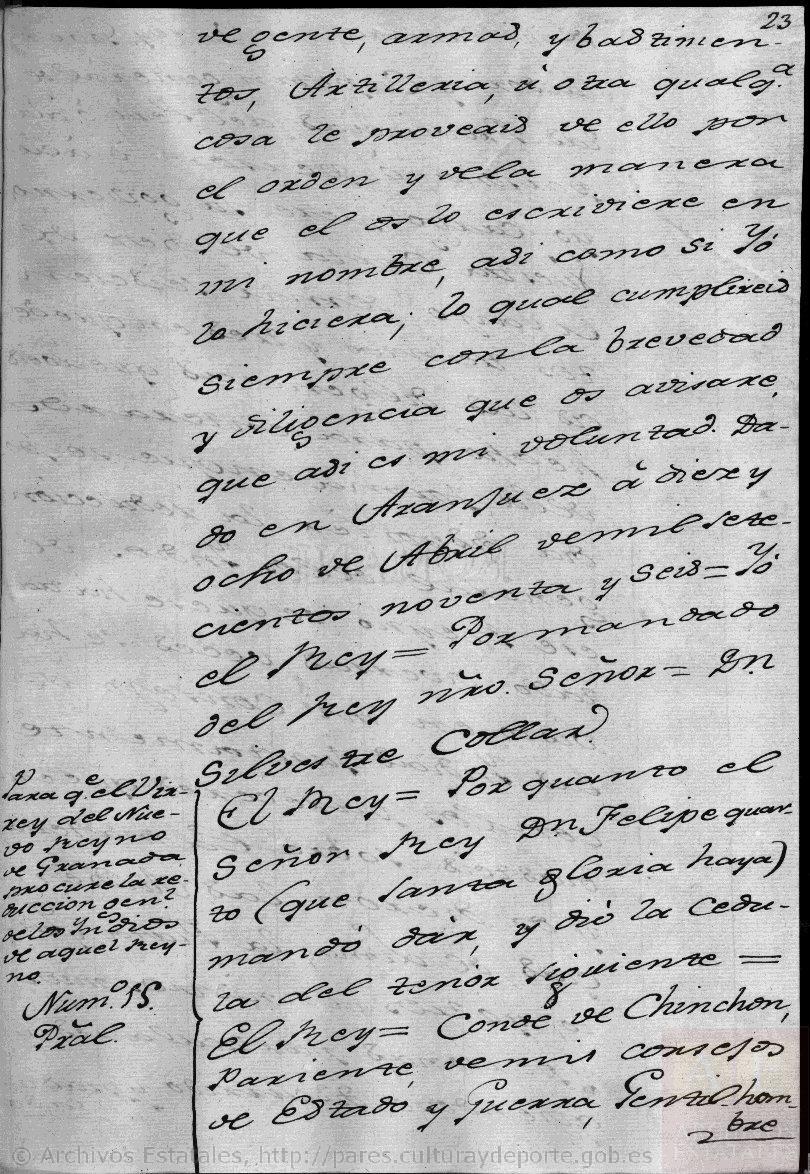 23
de gente, armas, y bastimen-
tos, Artilleria, ú otra qualq.ª
cosa le proveais de ello por
el orden y de la manera
que el os lo escriviere en
mi nombre, asi como si Yó
lo hiciera; lo qual cumplireis
siempre con la brevedad
y diligencia que os avisare,
que asi es mi voluntad. Da-
do en Aranjuez á diez y
ocho de Abril de mil sete-
cientos noventa y seis = Yó
el Rey = Por mandado
del Rey nr̃o. Señor = Dn.
Silvestre Collar.
Para q.e el Vir-
rey del Nue-
vo Reyno
de Granada
procure la re-
duccion gen.l
de los Yndios
de aquel Rey-
no.
Num.º 55.
Pr̃al.
El Rey = Por quanto el
Señor Rey Dn. Felipe quar-
to (que santa gloria haya)
mandó dár, y dió la Cedu-
la del tenór siguiente =
El Rey = Conde de Chinchon,
Pariente, de mis consejos
de Estado y Guerra, Gentil-hom-
bre
© Archivos Estatales, http://pares.culturaydeporte.gob.es